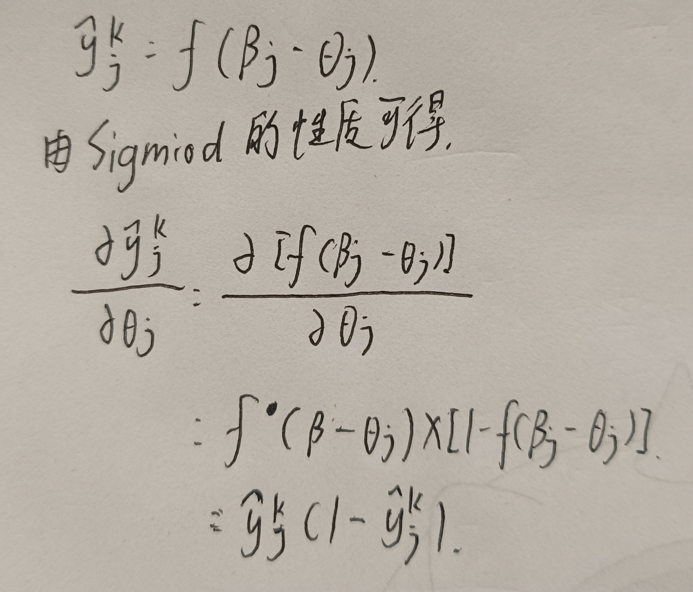 ŷ_j^k = f(β_j - θ_j).
由 Sigmiod 的性质可得.
∂ŷ_j^k / ∂θ_j = ∂[f(β_j - θ_j)] / ∂θ_j
= f•(β - θ_j) × [1 - f(β_j - θ_j)].
= ŷ_j^k (1 - ŷ_j^k).